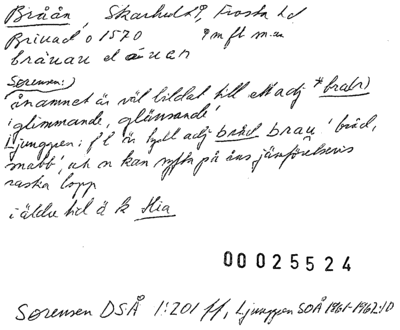 Bråån, Skarhult s, Frosta hd
Brwad o 1570
bråuan
Sørensen:)
ånamnet är väl bildat till ett adj *
'glimmande, glänsande'
Ljunggren: adj bråd brau 'bråd,
snabb', kan syfta på åns jämförelsevis
raska lopp
i äldre tid ä k Hia
00025524
Sørensen DSÅ 1:201 ff, Ljunggren SOÅ 1961-1962:10